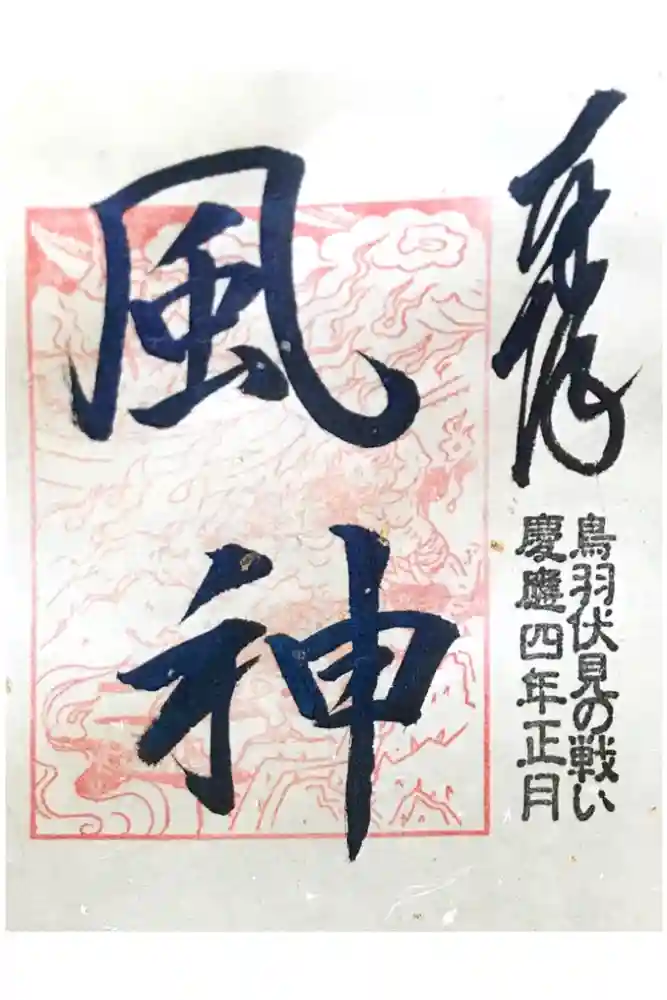 奉拝
鳥羽伏見の戦い
慶應四年正月
風神